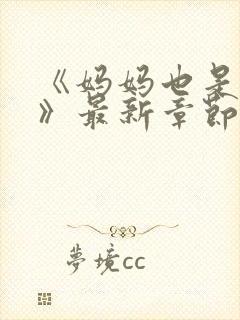 《妈妈也是
》最新章节
夢境cc